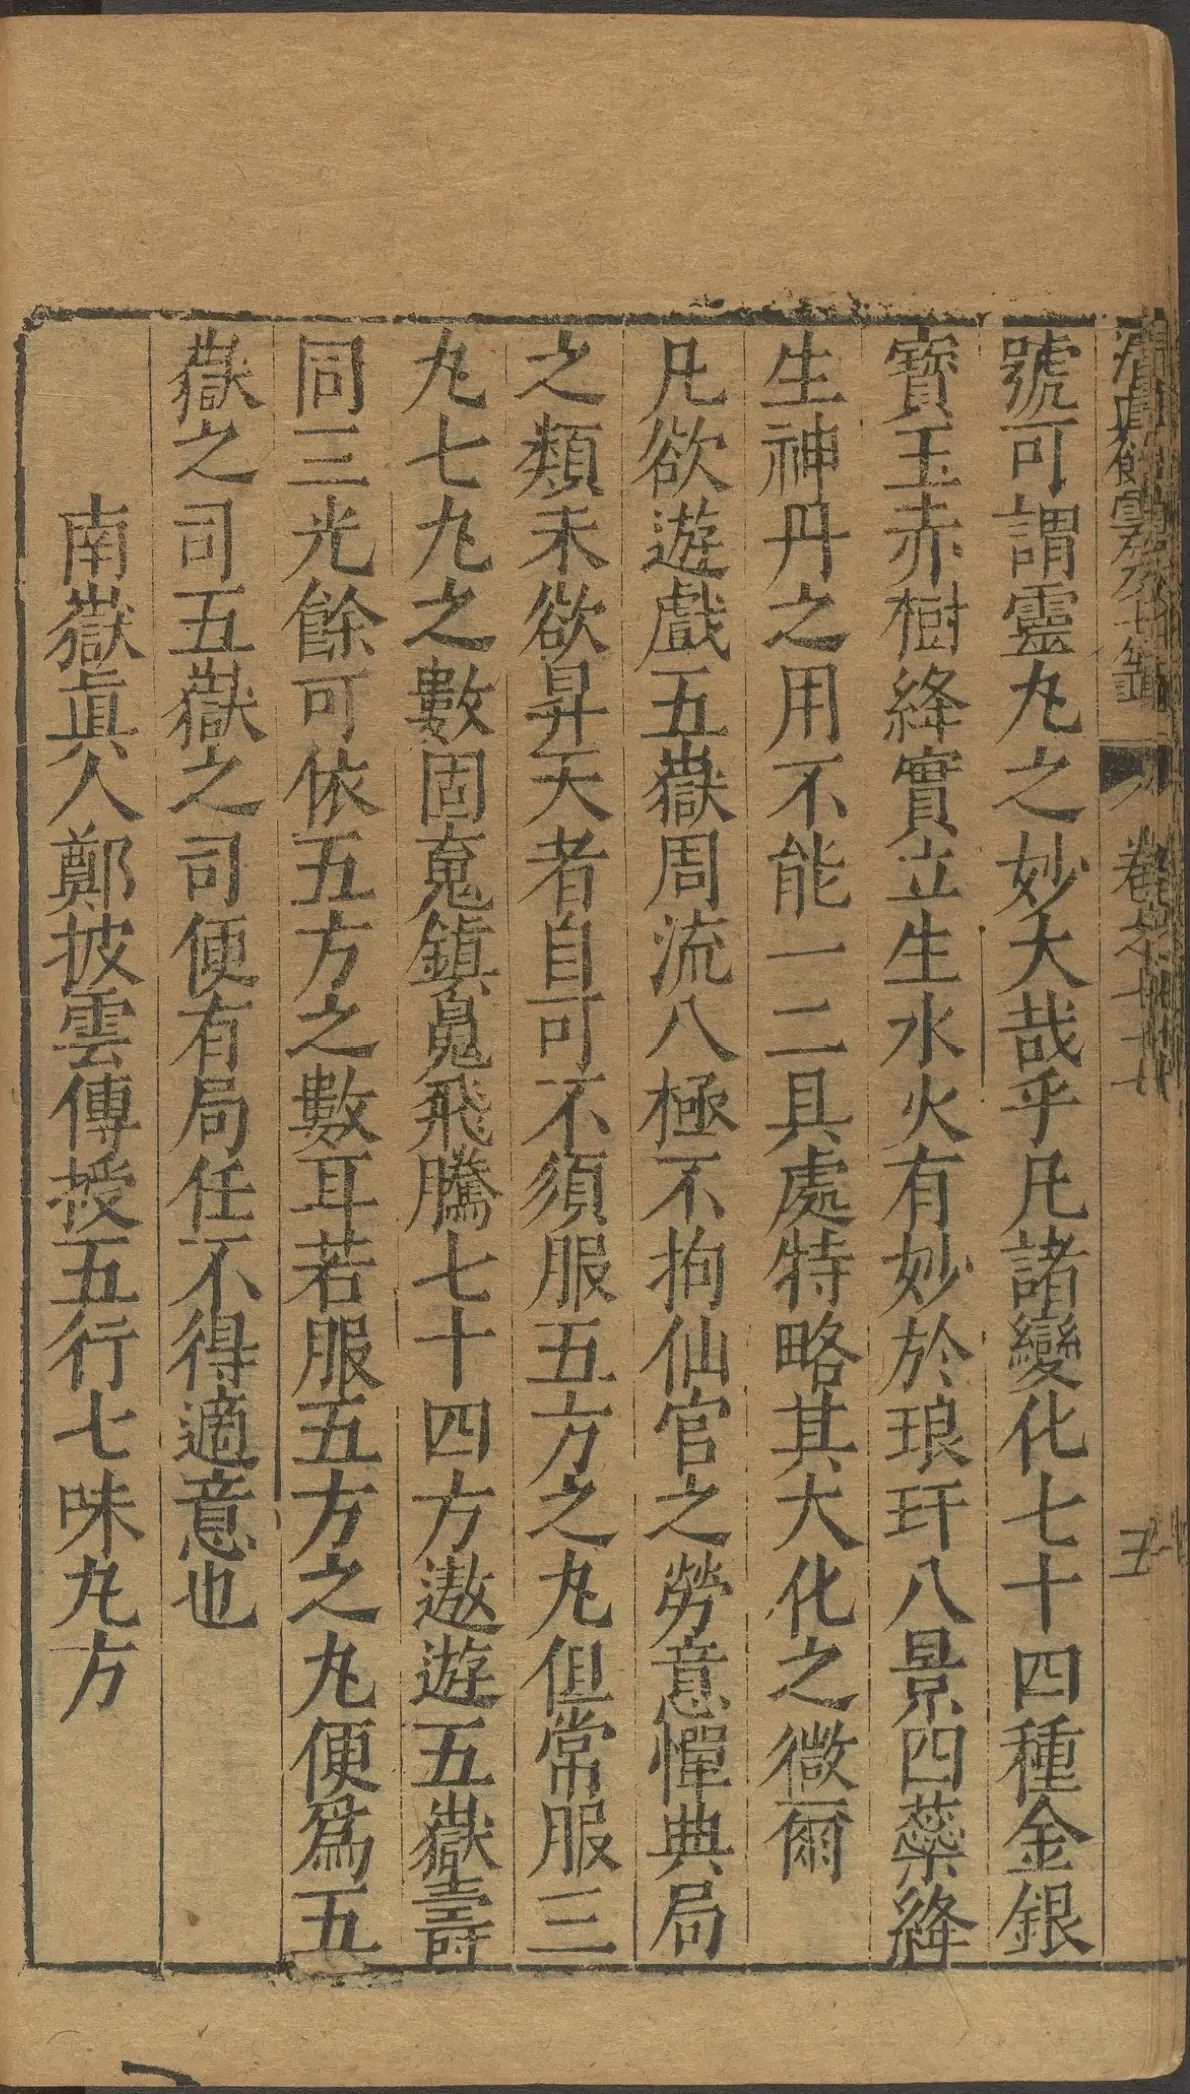 號可謂靈丸之妙大哉乎凡諸變化七十四種金銀
寶玉赤樹絳實立生水火有妙於琅玕八景四蘂絳
生神丹之用不能一二具處特略其大化之微爾
凡欲遊戲五嶽周流八極不拘仙官之勞意憚典局
之類未欲昇天者自可不須服五方之丸但常服三
丸七丸之數固䰟鎮魄飛騰七十四方遨遊五嶽壽
同三光餘可依五方之數耳若服五方之丸便爲五
嶽之司五嶽之司便有局任不得適意也
南嶽眞人鄭披雲傳授五行七味丸方